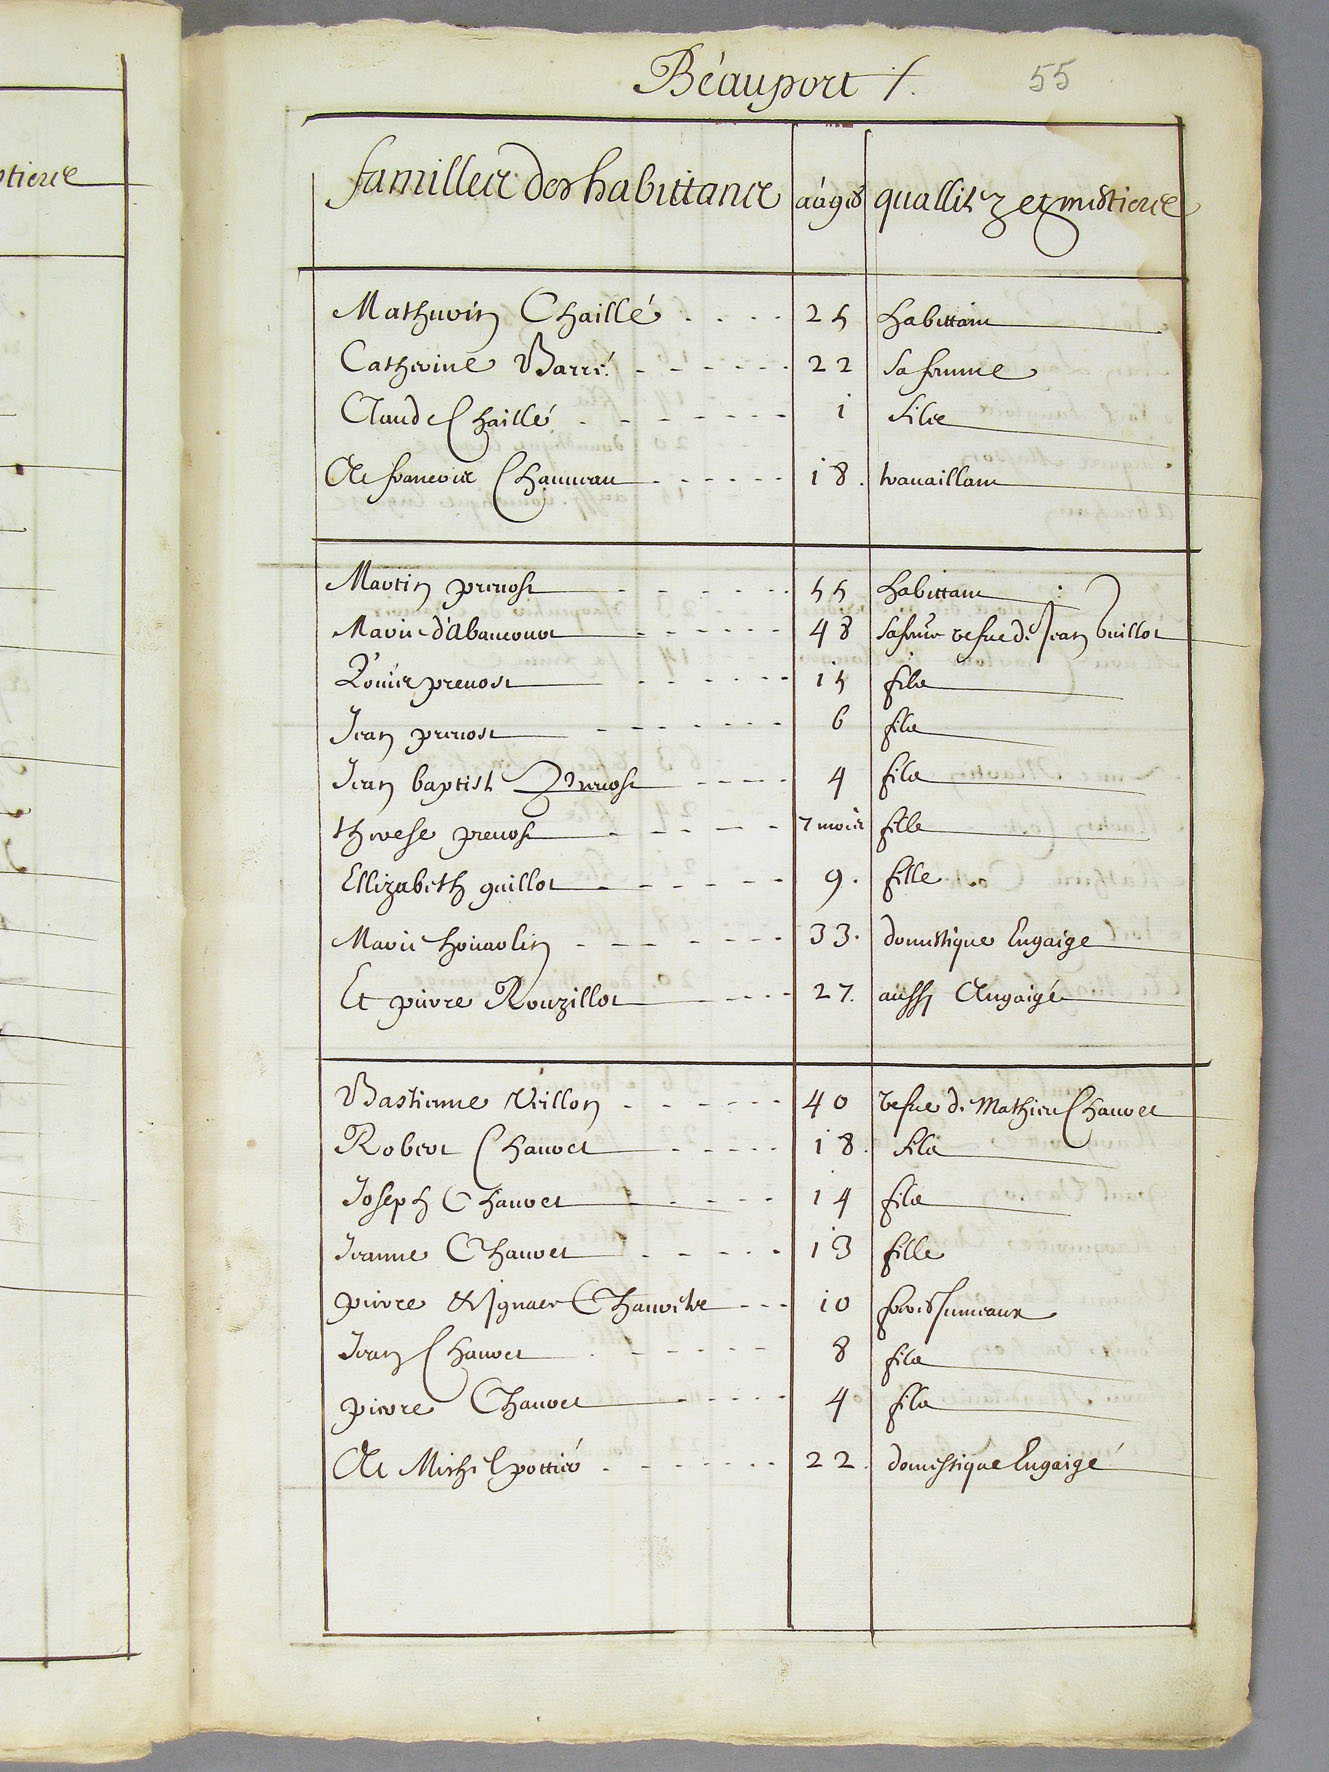 stiers
Beauport /.
55
familles des habittans aages quallitez et mestiers
Mathurin Chaillé . . . . 25 habittant
Catherine Barré . - - - - - 22 sa femme
Claude Chaillé . - - - - - 1 fils
Et francois Chauueau - - - - - 18. trauaillant
Martin preuost - - - - - 55 habittant :
Marie d'Abancourt - - - - - 48 sa feme vefue de Jean Guillot
Louis preuost - - - - - 15 fils
Jean preuost - - - - - 6 fils
Jean baptist preuost - - - - 4 fils
therese preuost - - - - - 7 mois fille
Ellizabeth guillot - - - - - 9. fille
Marie houarlin - - - - - 33. domestique Engaige
Et pierre Rouzillot - - - - 27. aussy Engaigé
Bastienne Veillon - - - - - 40 vefue de Mathieu Chauvet
Robert Chauvet - - - - - 18. fils
Joseph Chauvet - - - - 14 fils
Jeanne Chauvet - - - - - 13 fille
pierre & Ignace Chauvet - - - 10 freres Jumeaux
Jean Chauvet . - - - - - 8 fils
pierre Chauvet - - - - - 4 fils
Et Michel pottier . - - - - - 22. domestique Engaigé